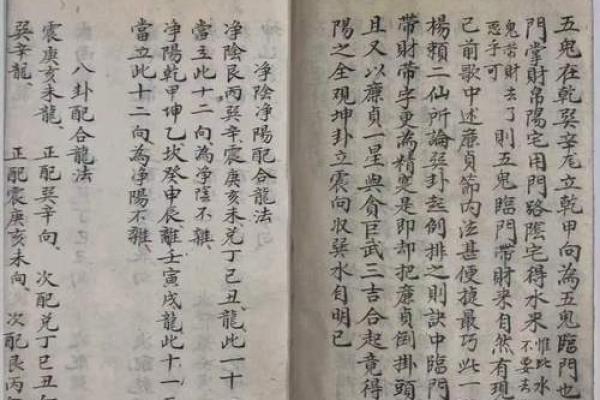 五鬼在乾巽辛尨立乾甲向為五鬼臨門也
門掌財帛陽宅用門路陰宅得水來惟此水不要去
鬼帶財去了惡乎可則五鬼臨門帶財來自然有現
已前歌中述廉貞篇内法甚便捷最巧此一
楊賴二仙所論巽卦起例排之則訣中臨門
帶財帶字更為精是即却把廉貞倒掛頭
且又以廉貞一星與貪巨武三吉合起竟得
陽之全現坤卦立震向収巽水自明已
淨陰淨陽配合龍法
淨陰艮丙巽辛、震庚亥未、兌丁巳丑、龍此一十
當立此十二向、為淨陰不雜、
淨陽乾甲坤乙坎癸申辰離壬寅戌龍此十一
當立此十二向、為淨陽不雜、
八卦配合龍法
震庚亥未龍、正配巽辛向、次配兌丁巳丑
巽辛龍、正配震庚亥未向、次配艮丙